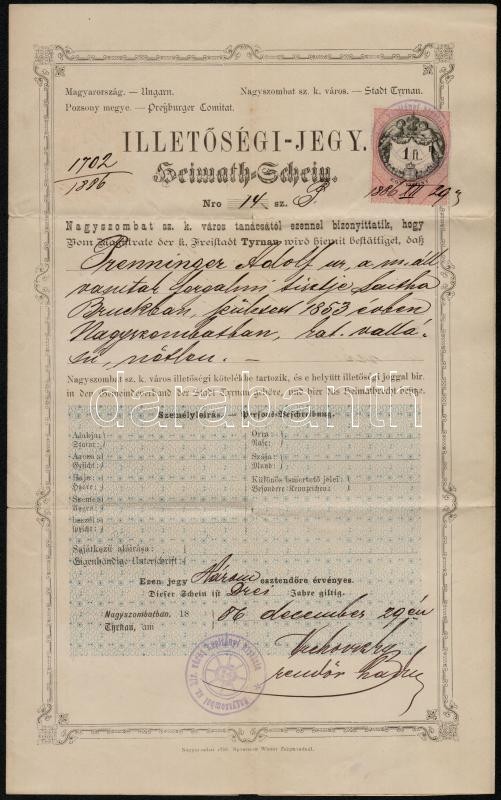 Magyarország. — Ungarn. Nagyszombat sz. k. város. — Stadt Tyrnau.
Pozsony megye. — Preßburger Comitat.
1702/1886
ILLETŐSÉGI-JEGY.
Heimath-Schein.
1 ft
Nro 14 sz.
1886 XII 29
Nagyszombat sz. k. város tanácsától ezennel bizonyittatik, hogy
Vom Magistrate der k. Freistadt Tyrnau wird hiemit bestättiget, daß
Prenninger Adolf ur, a m. áll
vasútak forgalmi tisztje Laitha
Bruckban, született 1853 évben
Nagyszombatban, kat. vallá-
su, nőtlen. —
Nagyszombat sz. k. város illetőségi kötelékbe tartozik, és e helyütt illetőségi joggal bir.
in den Gemeindeverband der Stadt Tyrnau gehöre, und hier das Heimatrecht besitze.
darabanth
Személyleirás. — Persons-Beschreibung.
Alakja: Orra:
Statur: Nase:
Arcza: Szája:
Gesicht: Mund:
Haja: Különös ismertető jelei:
Haare: Besondere Kennzeichen:
Szeme:
Augen:
beszél:
spricht:
Sajátkezű aláirása:
Eigenhändige Unterschrift:
Ezen jegy Három esztendőre érvényes.
Dieser Schein ist Drei Jahre giltig.
Nagyszombatban, 18 86 december 29én
Tyrnau, am
rendőr